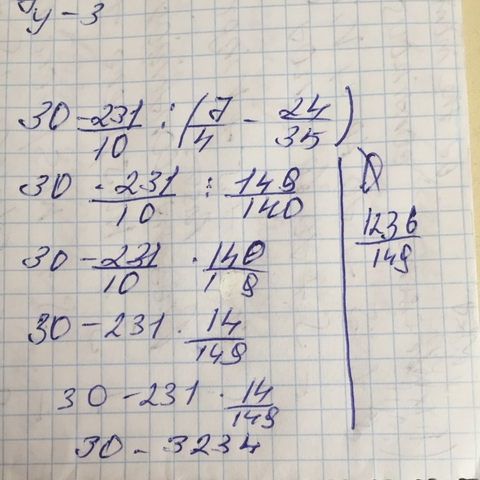 y - 3
30 - 231/10 : (7/4 - 24/35)
30 - 231/10 : 149/140
30 - 231/10 · 140/149
30 - 231 · 14/149
30 - 231 · 14/149
30 - 3234
1236/149